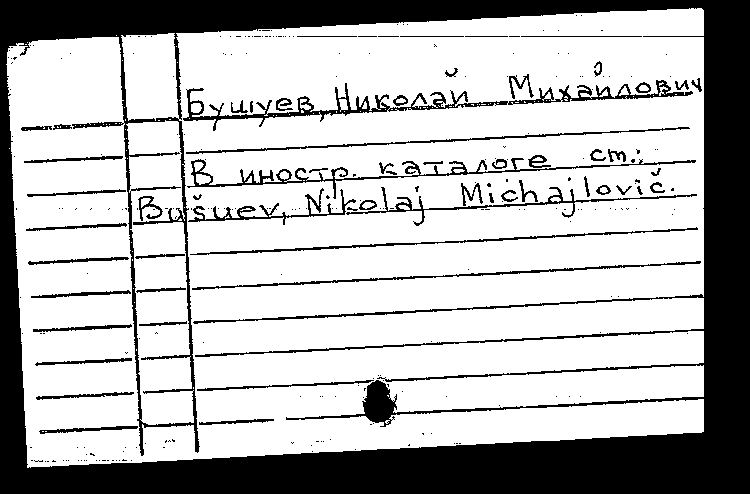 Бушуев, Николай Михайлович
В иностр. каталоге ст.:
Bušuev, Nikolaj Michajlovič.